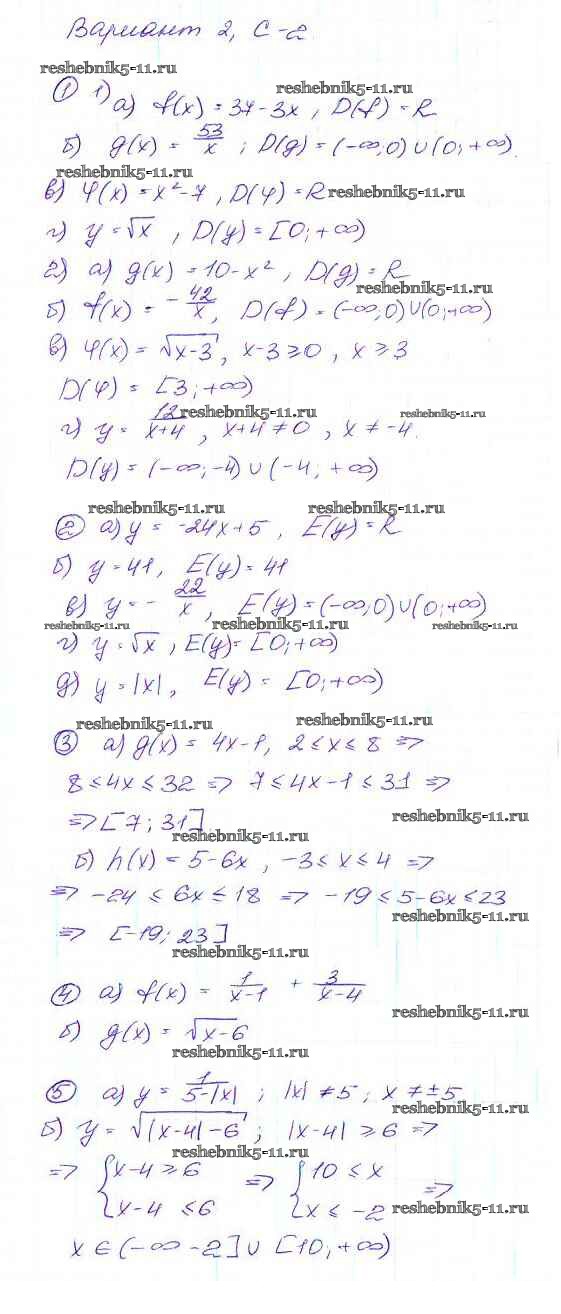 Вариант 2, С-2
reshebnik5-11.ru
reshebnik5-11.ru
① 1) а) f(x) = 37-3x, D(f) = R
б) g(x) = 53/x ; D(g) = (-∞;0) ∪ (0;+∞).
reshebnik5-11.ru
в) φ(x) = x²-7, D(φ) = R
reshebnik5-11.ru
г) y = √x , D(y) = [0;+∞)
2) а) g(x) = 10-x², D(g) = R
reshebnik5-11.ru
б) f(x) = -42/x, D(f) = (-∞;0)∪(0;+∞)
в) φ(x) = √x-3, x-3≥0, x≥3
D(φ) = [3;+∞)
reshebnik5-11.ru
reshebnik5-11.ru
г) y = 12/x+4 , x+4≠0, x≠-4.
D(y) = (-∞;-4) ∪ (-4; +∞)
reshebnik5-11.ru
reshebnik5-11.ru
② а) y = -24x+5, E(y) = R
б) y=41, E(y)=41
в) y = -22/x, E(y) = (-∞;0)∪(0;+∞)
reshebnik5-11.ru
reshebnik5-11.ru
reshebnik5-11.ru
г) y=√x, E(y) = [0;+∞)
д) y=|x|, E(y) = [0;+∞)
reshebnik5-11.ru
reshebnik5-11.ru
③ а) g(x) = 4x-1, 2≤x≤8 =>
8≤4x≤32 => 7≤4x-1≤31 =>
=> [7;31]
reshebnik5-11.ru
reshebnik5-11.ru
б) h(x) = 5-6x, -3≤x≤4 =>
=> -24≤6x≤18 => -19≤5-6x≤23
reshebnik5-11.ru
=> [-19;23]
reshebnik5-11.ru
④ а) f(x) = 1/x-1 + 3/x-4
reshebnik5-11.ru
б) g(x) = √x-6
reshebnik5-11.ru
⑤ а) y = 1/5-|x| ; |x|≠5; x≠±5
reshebnik5-11.ru
б) y = √|x-4|-6 ; |x-4|≥6 =>
reshebnik5-11.ru
=> {x-4≥6 => {10≤x =>
x-4 ≤6 x≤-2
reshebnik5-11.ru
x∈(-∞ -2]∪[10;+∞)